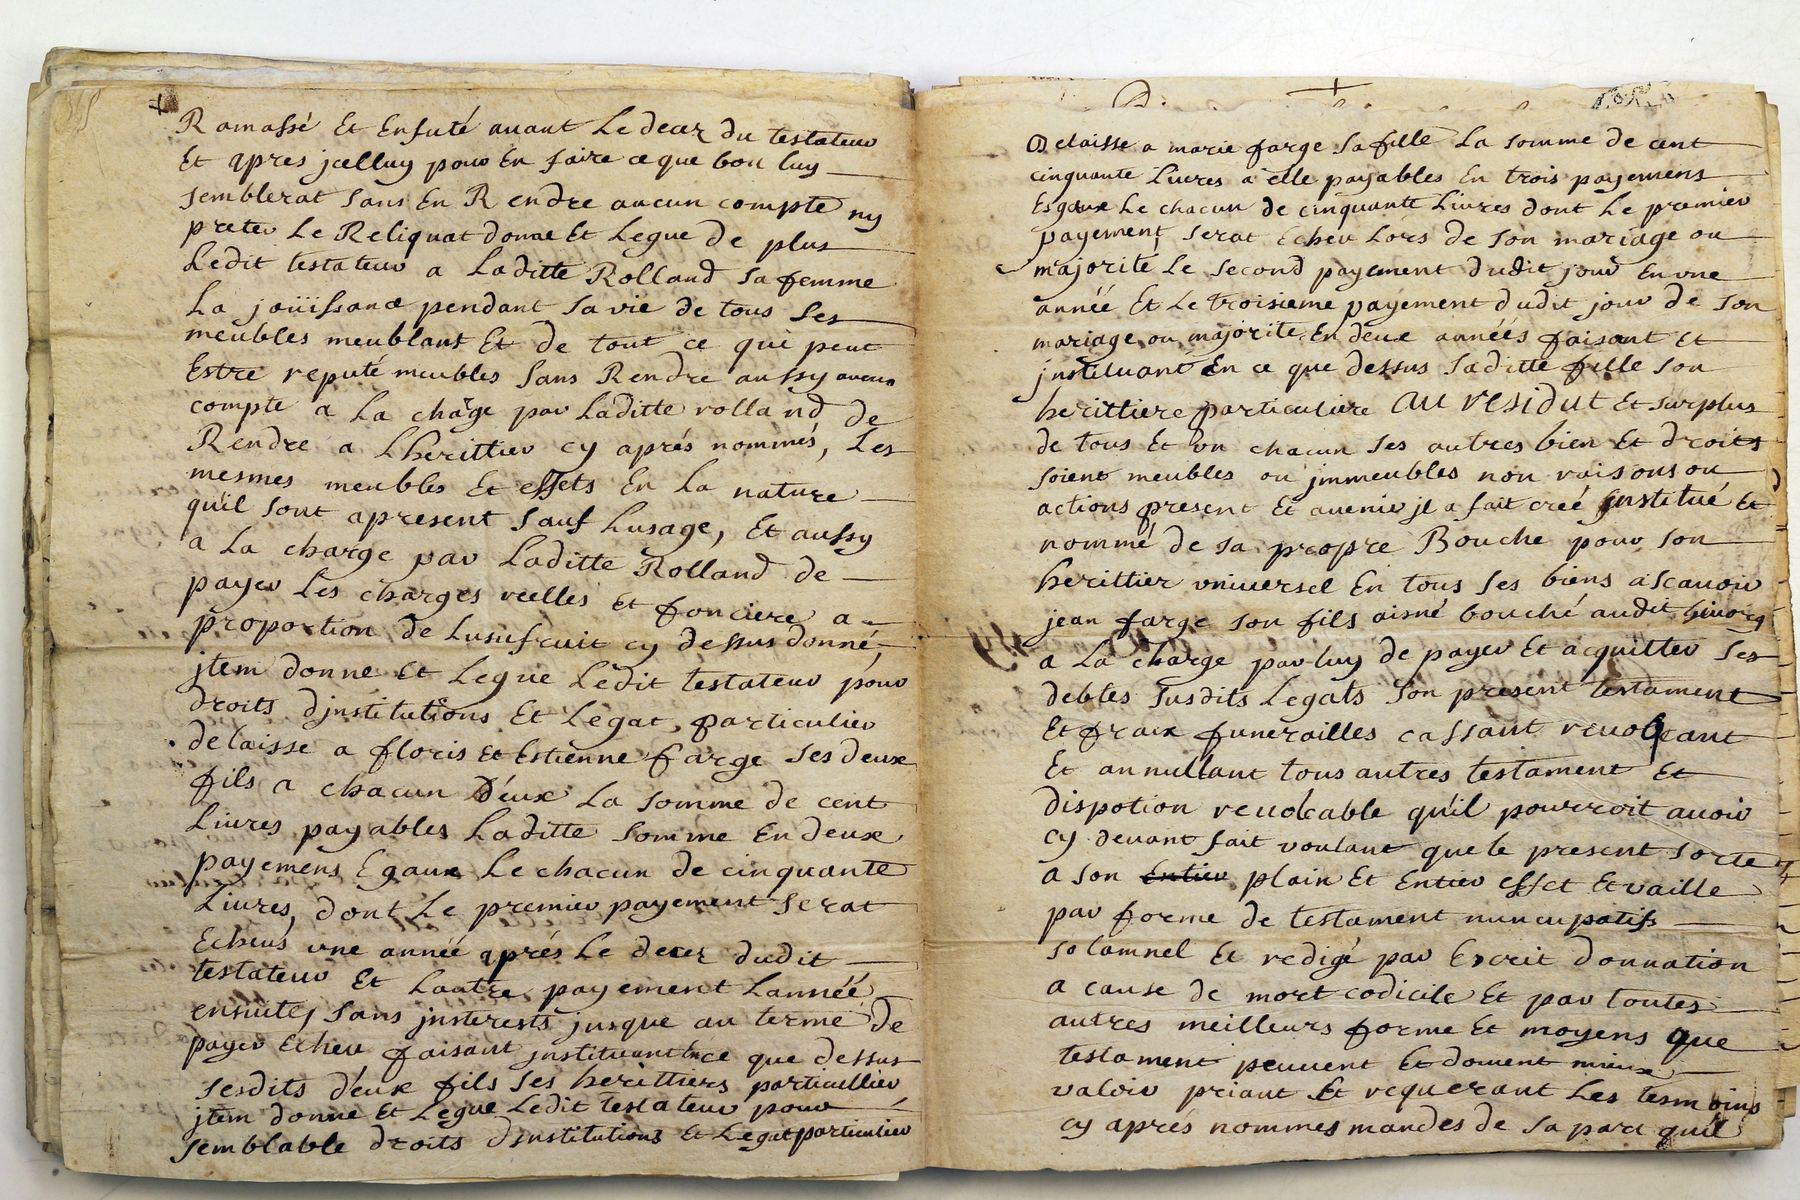 Ramassé Et Enfuté auant Le decez du testateur
Et apres jcelluy pour En faire ce que bon luy
semblerat sans En Rendre aucun compte ny
preter Le Reliquat donne Et Legue de plus
Ledit testateur a Laditte Rolland sa femme
La joüissance pendant sa vie de tous ses
meubles meublant Et de tout ce qui peut
Estre reputé meubles sans Rendre aussy aucun
compte a La chage par Laditte rolland de
Rendre a Lherittier cy aprés nommés, Les
mesmes meubles Et effets En La nature
quil sont apresent sauf Lusage, Et aussy
a La charge par Laditte Rolland de
payer Les charges reelles et fonciere a
proportion de Lusufruit cy dessus donné,
jtem donne Et Legue Ledit testateur pour
droits djnstitutions Et Legat, particulier
delaisse a floris Et Estienne farge ses deux
fils a chacun d'eux La somme de cent
Liures payables Laditte somme En deux
payemens Egaux Le chacun de cinquante
Liures, dont Le premier payement serat
Echeus vne année aprés Le decez dudit
testateur Et Lautre payement Lannéé
ensuite, sans jnterests jusque au terme de
payer Echeu faisant jnstituant En ce que dessus
sesdits d'eux fils ses herittiers particullier
jtem donne Et Legue Ledit testateur pour
semblable droits djnstitutions Et Legat particulier
Delaisse a marie farge sa fille La somme de cent
cinquante Liures a elle payables En trois payemens
Esgaux Le chacun de cinquante Liures dont Le premier
payement serat Echeu Lors de son mariage ou
majorité Le second payement dudit jour En vne
annéé Et Le troisieme payement dudit jour de son
mariage ou majorite En deux annéés faisant Et
jnstituant En ce que dessus saditte fille son
herittiere particuliere au residut Et surplus
de tous Et vn chacun ses autres bien Et droits
soient meubles ou jmmeubles non raisons ou
actions present Et auenir jl a fait créé jnstitué Et
nommé de sa propre Bouche pour son
herittier vniuersel En tous ses biens ascauoir
jean farge son fils aisné bouché audit
a La charge par luy de payer Et acquitter ses
debtes susdits Legats son present testament
Et fraix funerailles cassant reuocant
Et annullant tous autres testament Et
dispotion reuocable quil pourroit auoir
cy deuant fait voulant que le present sorte
a son Entier plain Et Entier effet Et vaille
par forme de testament nuncupatifs
solamnel Et redigé par Escrit donnation
a cause de mort codicile Et par toutes
autres meilleurs forme Et moyens que
testament peuuent Et doiuent mieux
valoir priant Et requerant Les tesmoins
cy aprés nommes mandes de sa part quil